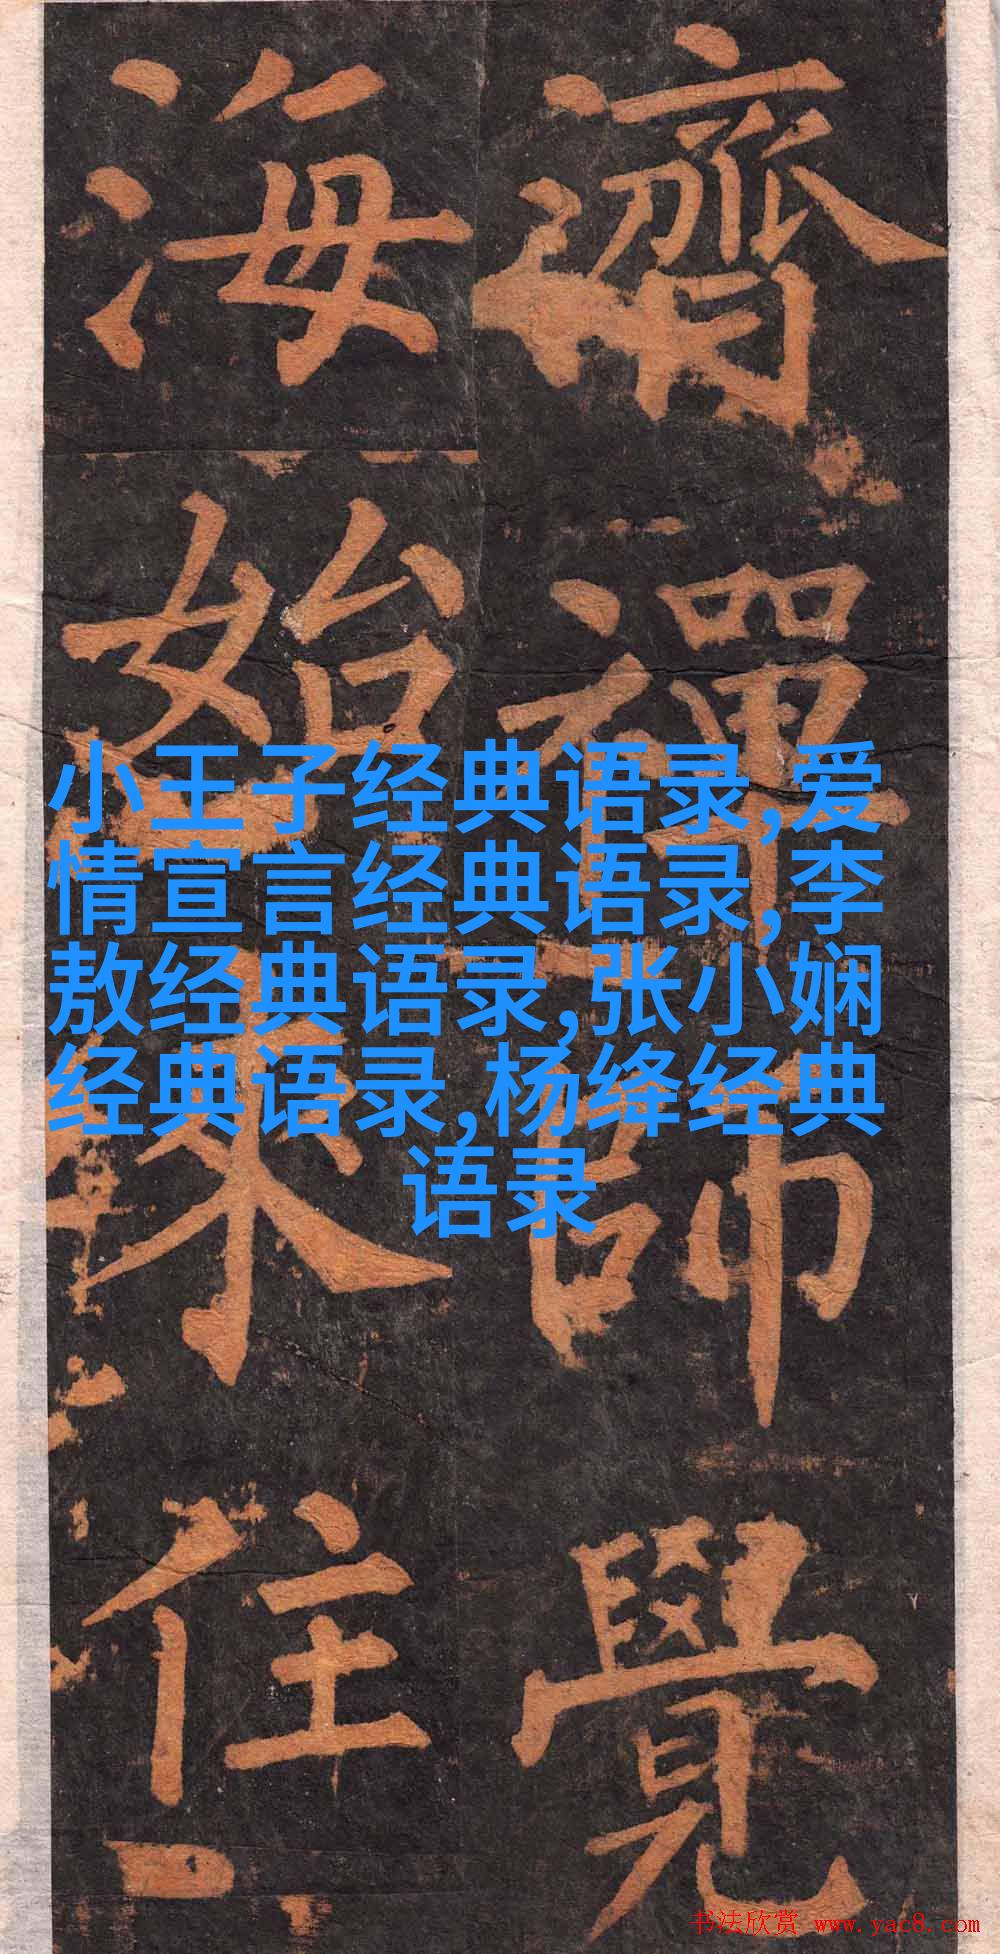 濟禪師覺
海始来住
小王子经典语录,爱
情宣言经典语录,李
敖经典语录,张小娴
经典语录,杨绛经典
语录
书法欣赏 www.yac8.com